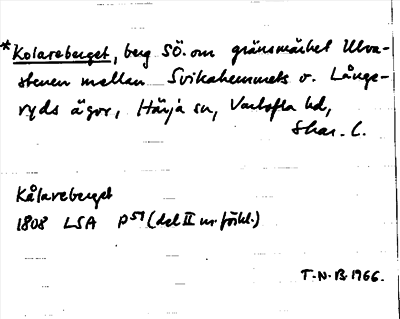 *Kolareberget, berg SÖ. om gränsmärket Ulva-
stenen mellan Svikahemmets o. Långe-
ryds ägor, Härja sn, Vartofta hd,
Skar. l.
Kålareberget
1808 LSA P51 (del II nr förkl.)
T.N.B. 1966.